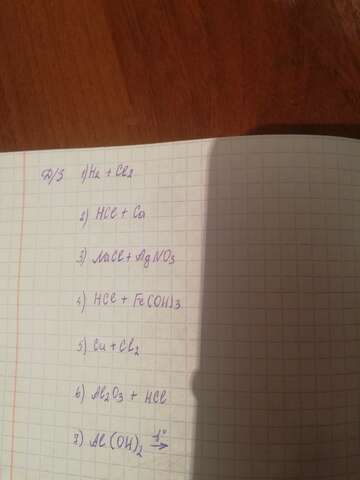 Д/З 1) H2 + Cl2
2) HCl + Ca
3) NaCl + AgNO3
4) HCl + Fe(OH)3
5) Cu + Cl2
6) Al2O3 + HCl
7) Al(OH)2 t° →